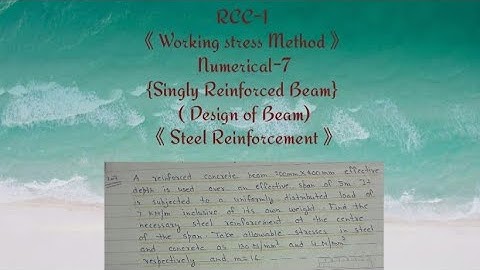 RCC-1
《 Working stress Method 》
Numerical-7
{Singly Reinforced Beam}
( Design of Beam)
《 Steel Reinforcement 》
A reinforced concrete beam 300mm x 400mm effective
depth is used over an effective span of 5m. It
is subjected to a uniformly distributed load of
7 KN/m inclusive of its own weight. Find the
necessary steel reinforcement at the centre
of the span. Take allowable stresses in steel
and concrete as 130 N/mm² and 4 N/mm²
respectively and m=16.